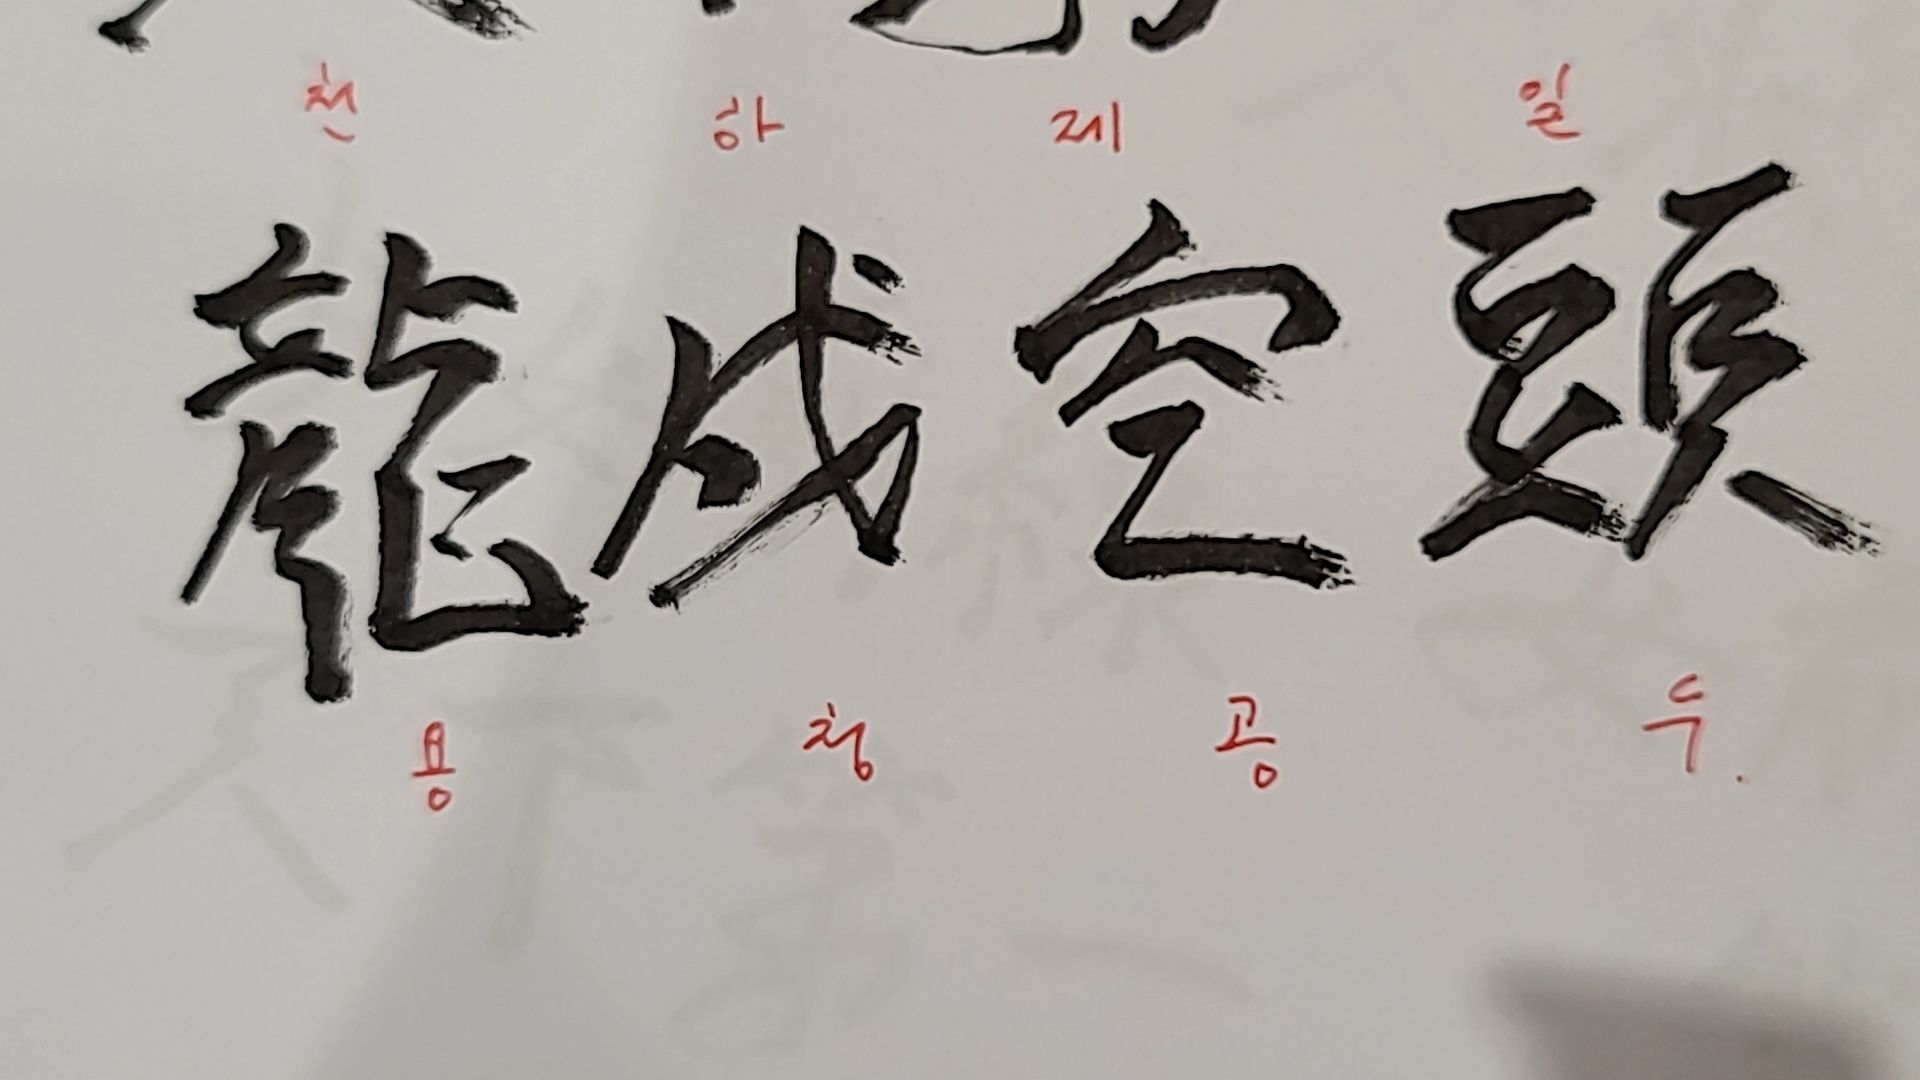 천 하 제 일
龍 成 空 頭
용 청 공 두